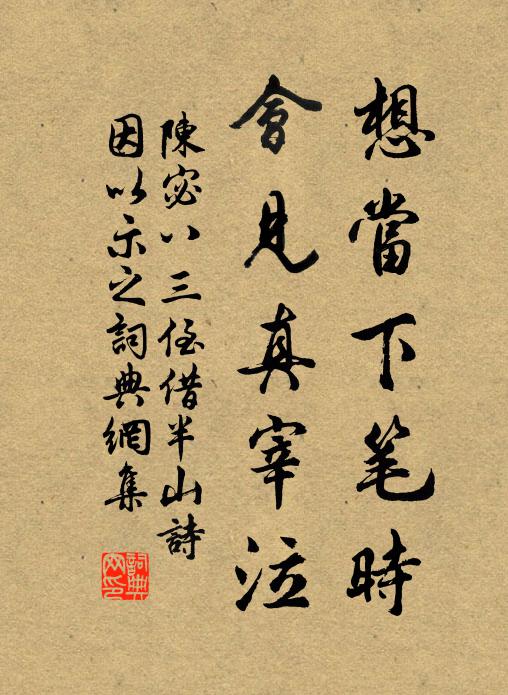 想當下笔時
會見真宰泣
陳宓八三侄借半山詩
因以示之詞典網集
詞典网印